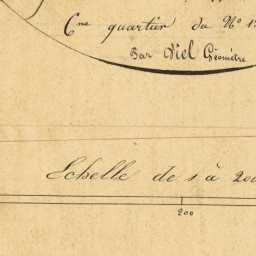 Cne quartier du No 1
Par Niel Géomètre
Echelle de 1 à 200
200